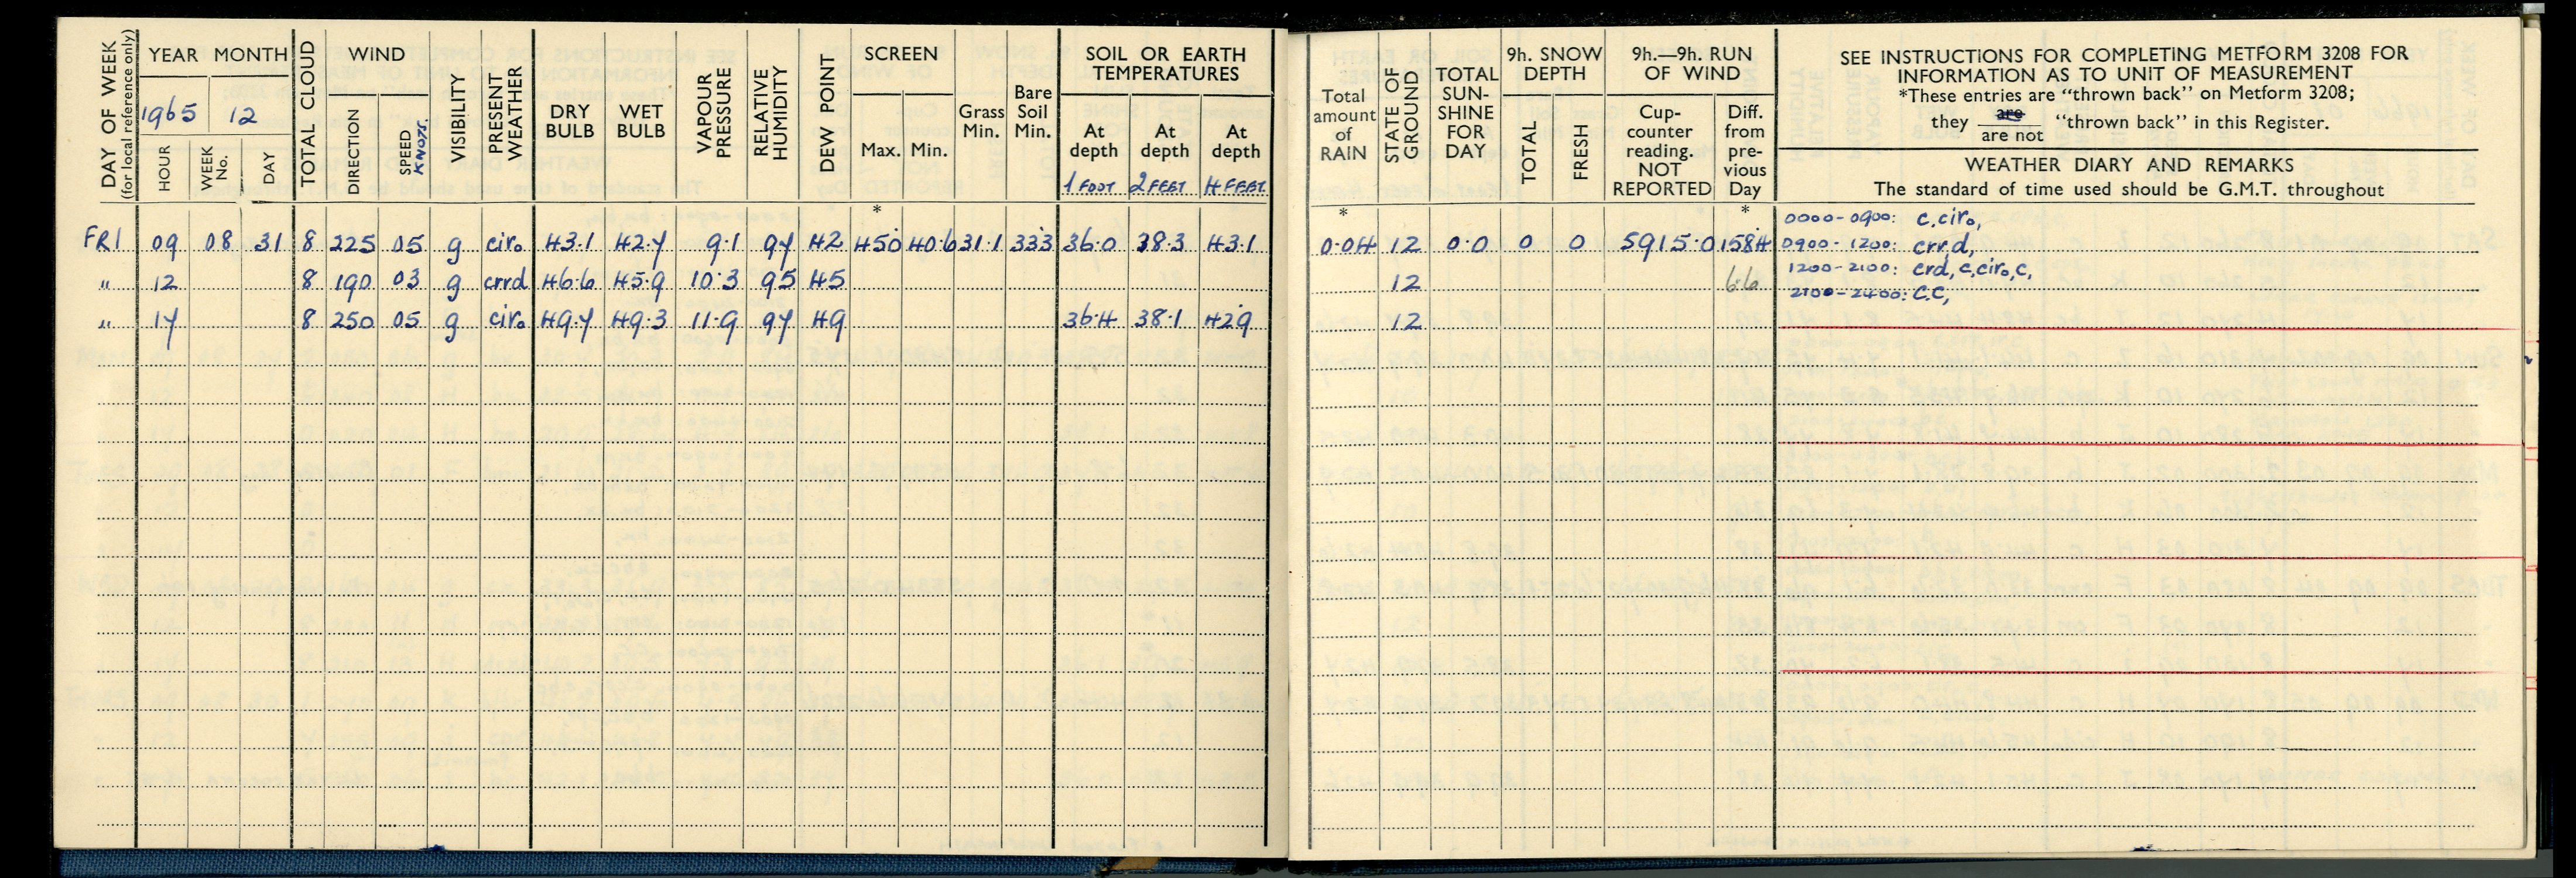 DAY OF WEEK
(for local reference only)
YEAR MONTH
1965 12
HOUR
WEEK No.
DAY
TOTAL CLOUD
WIND
DIRECTION
SPEED
KNOTS.
VISIBILITY
PRESENT WEATHER
DRY BULB
WET BULB
VAPOUR PRESSURE
RELATIVE HUMIDITY
DEW POINT
SCREEN
Max. Min.
Grass Min.
Bare Soil Min.
SOIL OR EARTH TEMPERATURES
At depth 1 FOOT
At depth 2 FEET
At depth 4 FEET
Total amount of RAIN
STATE OF GROUND
TOTAL SUN-SHINE FOR DAY
9h. SNOW DEPTH
TOTAL
FRESH
9h.—9h. RUN OF WIND
Cup-counter reading. NOT REPORTED
Diff. from pre-vious Day
SEE INSTRUCTIONS FOR COMPLETING METFORM 3208 FOR
INFORMATION AS TO UNIT OF MEASUREMENT
*These entries are "thrown back" on Metform 3208;
they are / are not "thrown back" in this Register.
WEATHER DIARY AND REMARKS
The standard of time used should be G.M.T. throughout
* * *
FRI 09 08 31 8 225 05 g ciro 43.1 42.7 9.1 97 42 45.0 40.6 31.1 33.3 36.0 38.3 43.1 0.04 12 0.0 0 0 5915.0 158.4
" 12 8 190 03 g crrd 46.6 45.9 10.3 95 45 12 6.6
" 17 8 250 05 g ciro 49.7 49.3 11.9 97 49 36.4 38.1 42.9 12
0000-0900: c,ciro,
0900-1200: crrd,
1200-2100: crd, c,ciro,c,
2100-2400: c.c,